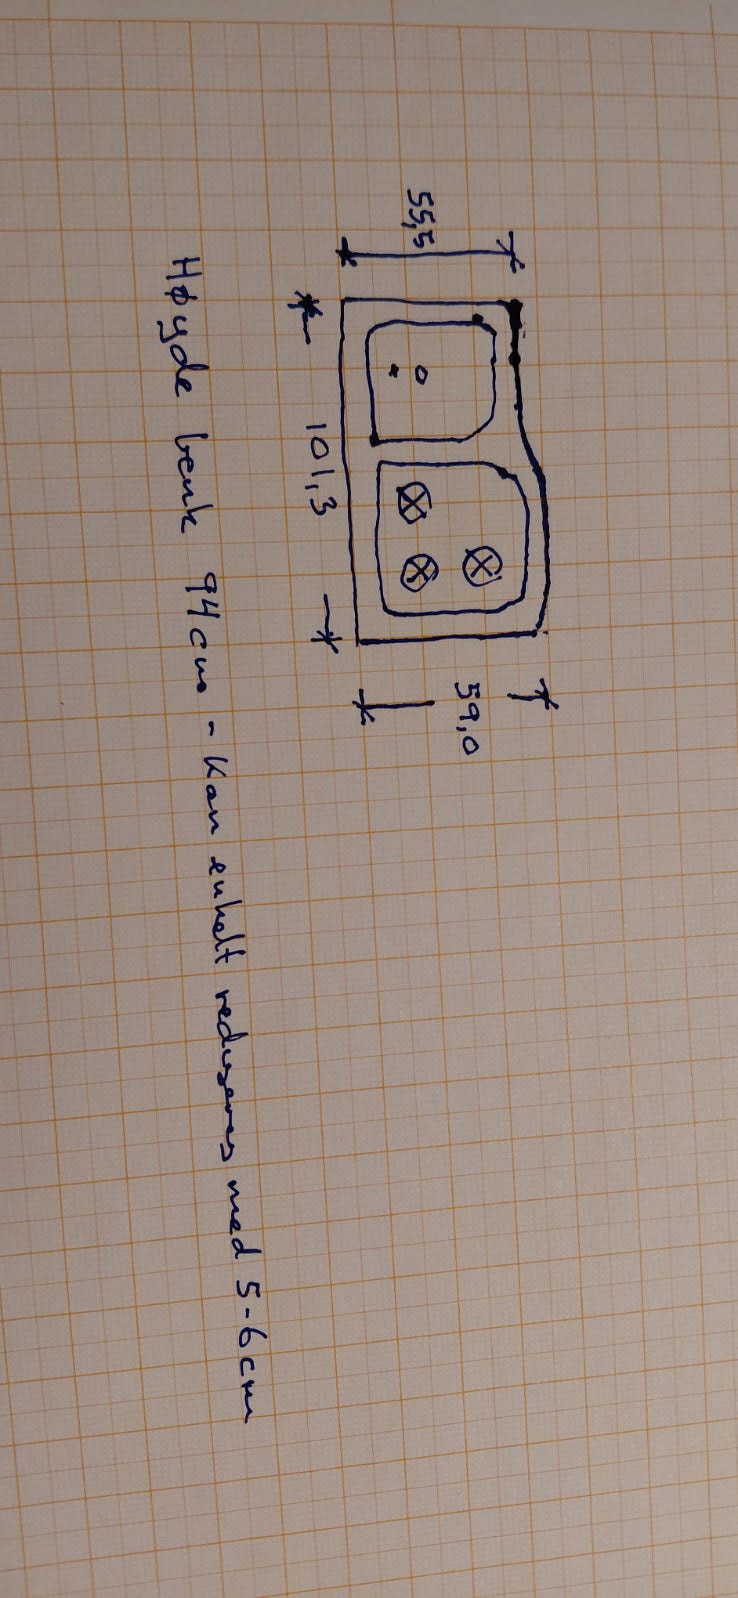 55,5
59,0
101,3
Høyde benk 94cm - Kan enkelt reduseres med 5-6cm